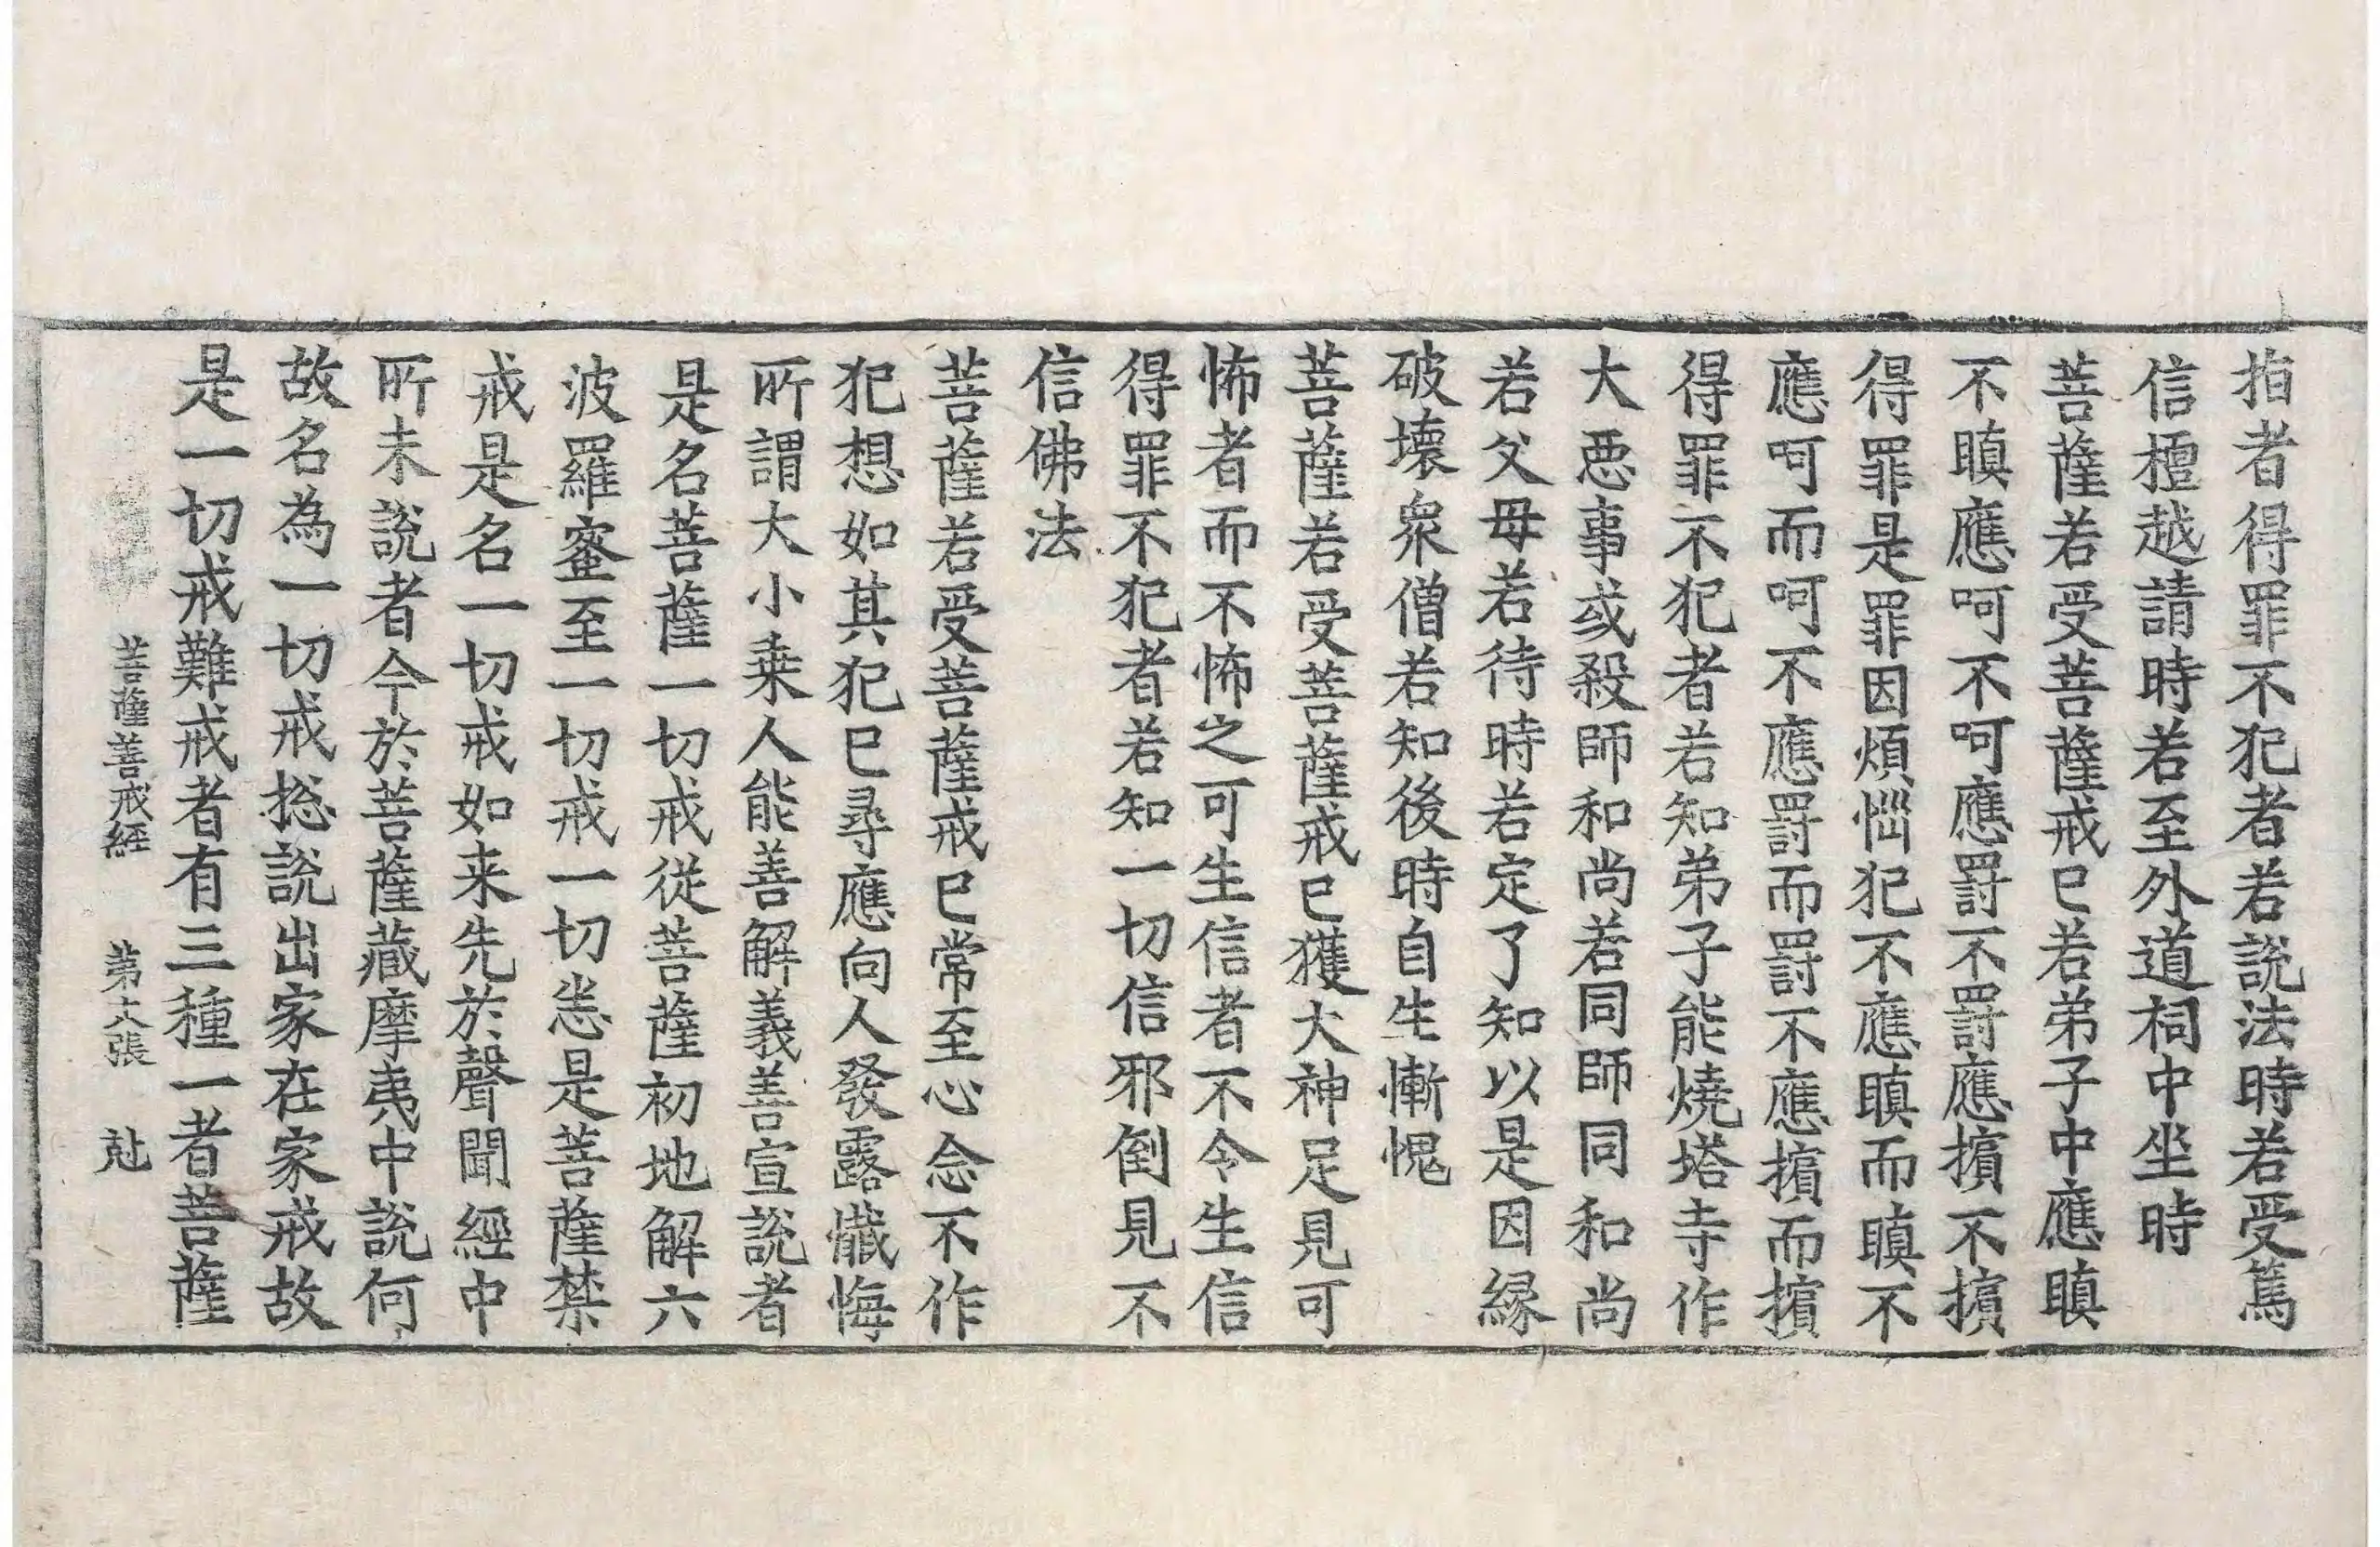 指者得罪不犯者若說法時若受篤
信檀越請時若至外道祠中坐時
菩薩若受菩薩戒已若弟子中應瞋
不瞋應呵不呵應罰不罰應擯不擯
得罪是罪因煩惱犯不應瞋而瞋不
應呵而呵不應罰而罰不應擯而擯
得罪不犯者若知弟子能燒塔寺作
大惡事或殺師和尚若同師同和尚
若父母若待時若定了知以是因緣
破壞衆僧若知後時自生慚愧
菩薩若受菩薩戒已獲大神足見可
怖者而不怖之可生信者不令生信
得罪不犯者若知一切信邪倒見不
信佛法
菩薩若受菩薩戒已常至心念不作
犯想如其犯已尋應向人發露懺悔
所謂大小乗人能善解義善宣說者
是名菩薩一切戒從菩薩初地解六
波羅蜜至一切戒一切悉是菩薩禁
戒是名一切戒如来先於聲聞經中
所未說者今於菩薩藏摩夷中說何
故名為一切戒捴說出家在家戒故
是一切戒難戒者有三種一者菩薩
菩薩善戒經 第六張 尅